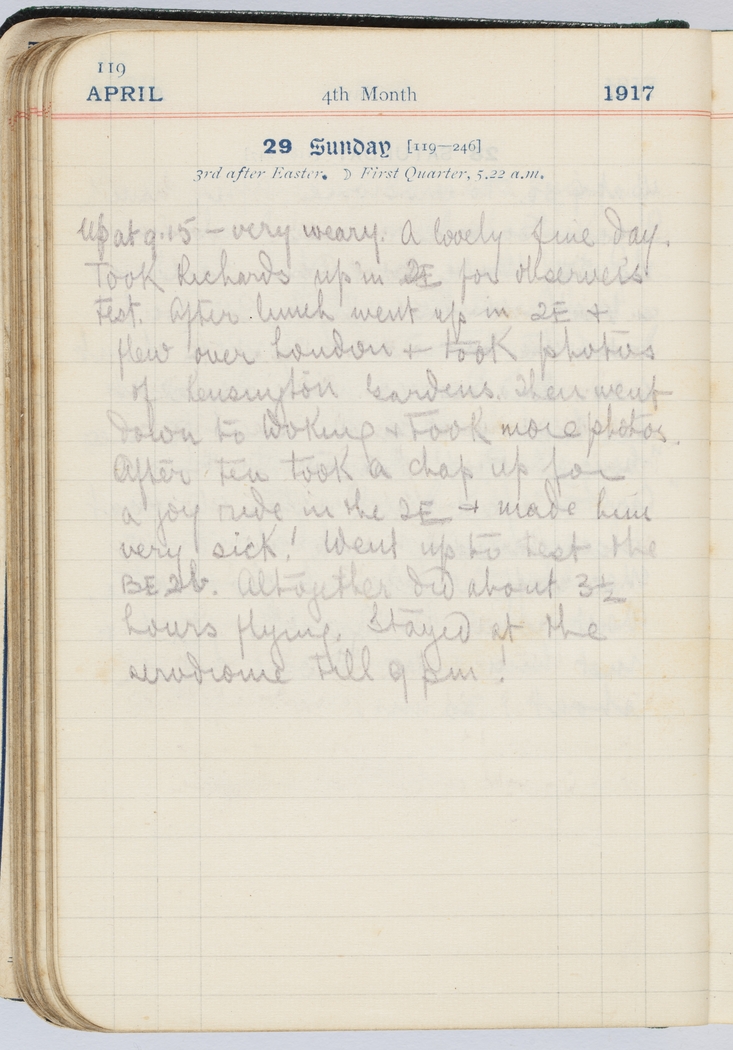 119
APRIL 4th Month 1917
29 Sunday [119—246]
3rd after Easter. ☽ First Quarter, 5.22 a.m.
Up at 9.15 – very weary. A lovely fine day.
Took Richards up in 2E for observer's
Test. After lunch went up in 2E +
flew over London + took photos
of Kensington Gardens. Then went
down to Woking + Took more photos.
After tea took a chap up for
a joy ride in the 2E + made him
very sick! Went up to test the
BE 2b. Altogether did about 3½
hours flying. Stayed at the
aerodrome till 9 pm!